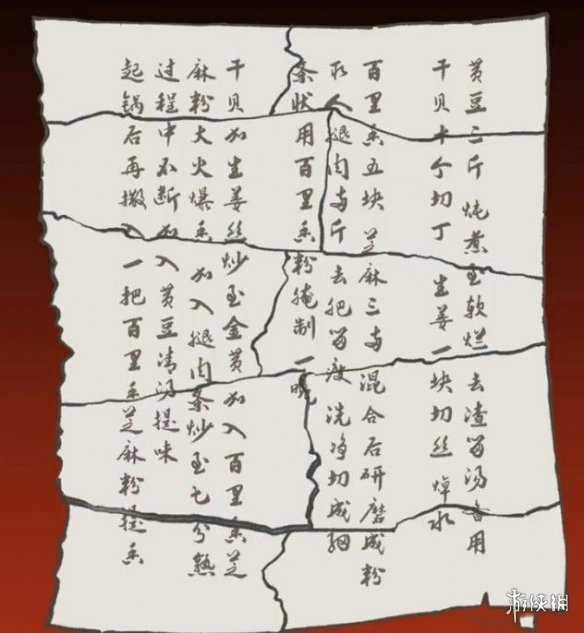 黄豆二斤 炖煮至软烂 去渣留汤备用
干贝十个切丁 生姜一块切丝焯水
百里香五块芝麻三两混合后研磨成粉
取人腿肉两斤 去肥留瘦洗净切成细
条状用百里香粉腌制一晚
干贝加生姜丝炒至金黄加入百里香芝
麻粉大火爆香 加入腿肉条炒至七分熟
过程中不断加入黄豆清汤提味
起锅后再撒入一把百里香芝麻粉提香
游侠网